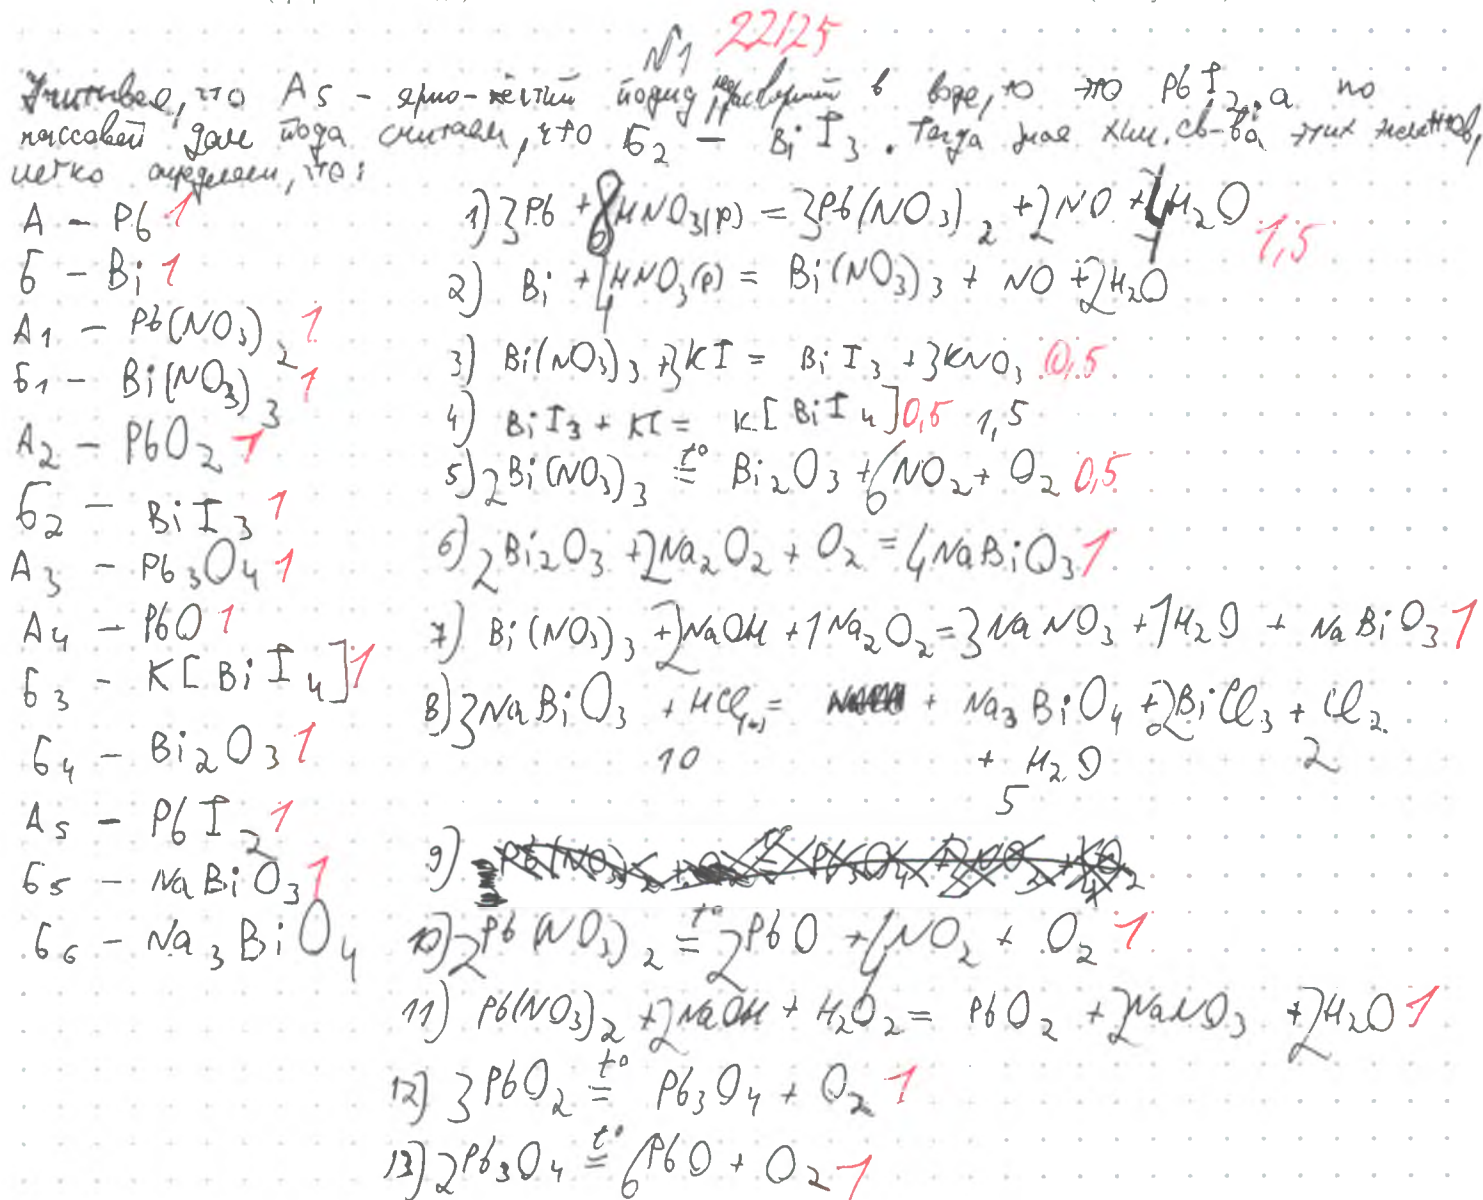 №1 22/25
Учитывая, что A5 – ярко-жёлтый йодид, нерастворимый в воде, то это PbI2, а по
массовой доле йода считаем, что Б2 – BiI3. Тогда зная хим. св-ва этих элементов,
легко определяем, что:
A – Pb 1
Б – Bi 1
A1 – Pb(NO3)2 1
Б1 – Bi(NO3)3 1
A2 – PbO2 1
Б2 – BiI3 1
A3 – Pb3O4 1
A4 – PbO 1
Б3 – K[BiI4] 1
Б4 – Bi2O3 1
A5 – PbI2 1
Б5 – NaBiO3 1
Б6 – Na3BiO4
1) 3Pb + 8HNO3(р) = 3Pb(NO3)2 + 2NO + 4H2O 1,5
2) Bi + 4HNO3(р) = Bi(NO3)3 + NO + 2H2O
3) Bi(NO3)3 + 3KI = BiI3 + 3KNO3 0,5
4) BiI3 + KI = K[BiI4] 0,5 1,5
5) 2Bi(NO3)3 =t° Bi2O3 + 6NO2 + O2 0,5
6) 2Bi2O3 + 2Na2O2 + O2 = 4NaBiO3 1
7) Bi(NO3)3 + 2NaOH + 1Na2O2 = 3NaNO3 + 1H2O + NaBiO3 1
8) 3NaBiO3 + 10HCl = + Na3BiO4 + 2BiCl3 + 2Cl2
+ 5H2O
9)
10) 2Pb(NO3)2 =t° 2PbO + 4NO2 + O2 1
11) Pb(NO3)2 + 2NaOH + H2O2 = PbO2 + 2NaNO3 + 2H2O 1
12) 3PbO2 =t° Pb3O4 + O2 1
13) 2Pb3O4 =t° 6PbO + O2 1